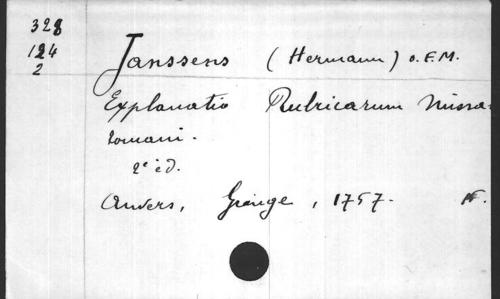 328
124
2
Janssens (Hermann) O.F.M.
Explanatio Rubricarum Missa
romani.
2e éd.
Anvers, Grangé, 1757.